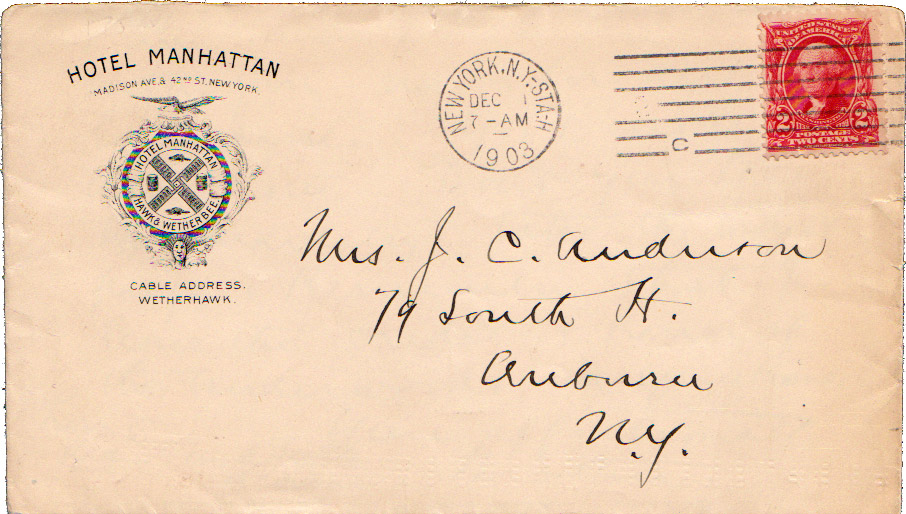 HOTEL MANHATTAN
MADISON AVE. & 42ND ST. NEW YORK.
HOTEL MANHATTAN
HAWK & WETHERBEE.
CABLE ADDRESS.
WETHERHAWK.
NEW YORK, N.Y.-STA.H
DEC 1
7-AM
1903
C
UNITED STATES
OF AMERICA
2 2
POSTAGE
TWO CENTS
Mrs. J. C. Anderson
79 South St.
Auburn
N.Y.